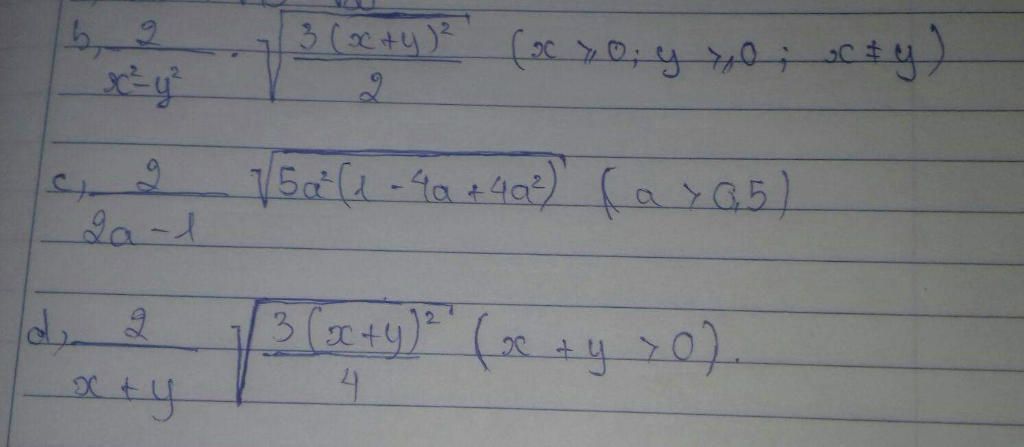 b, 2/(x²-y²) · √(3(x+y)²/2) (x ≥ 0; y ≥ 0; x ≠ y)
c, 2/(2a-1) √(5a²(1-4a+4a²)) (a > 0,5)
d, 2/(x+y) √(3(x+y)²/4) (x + y > 0).